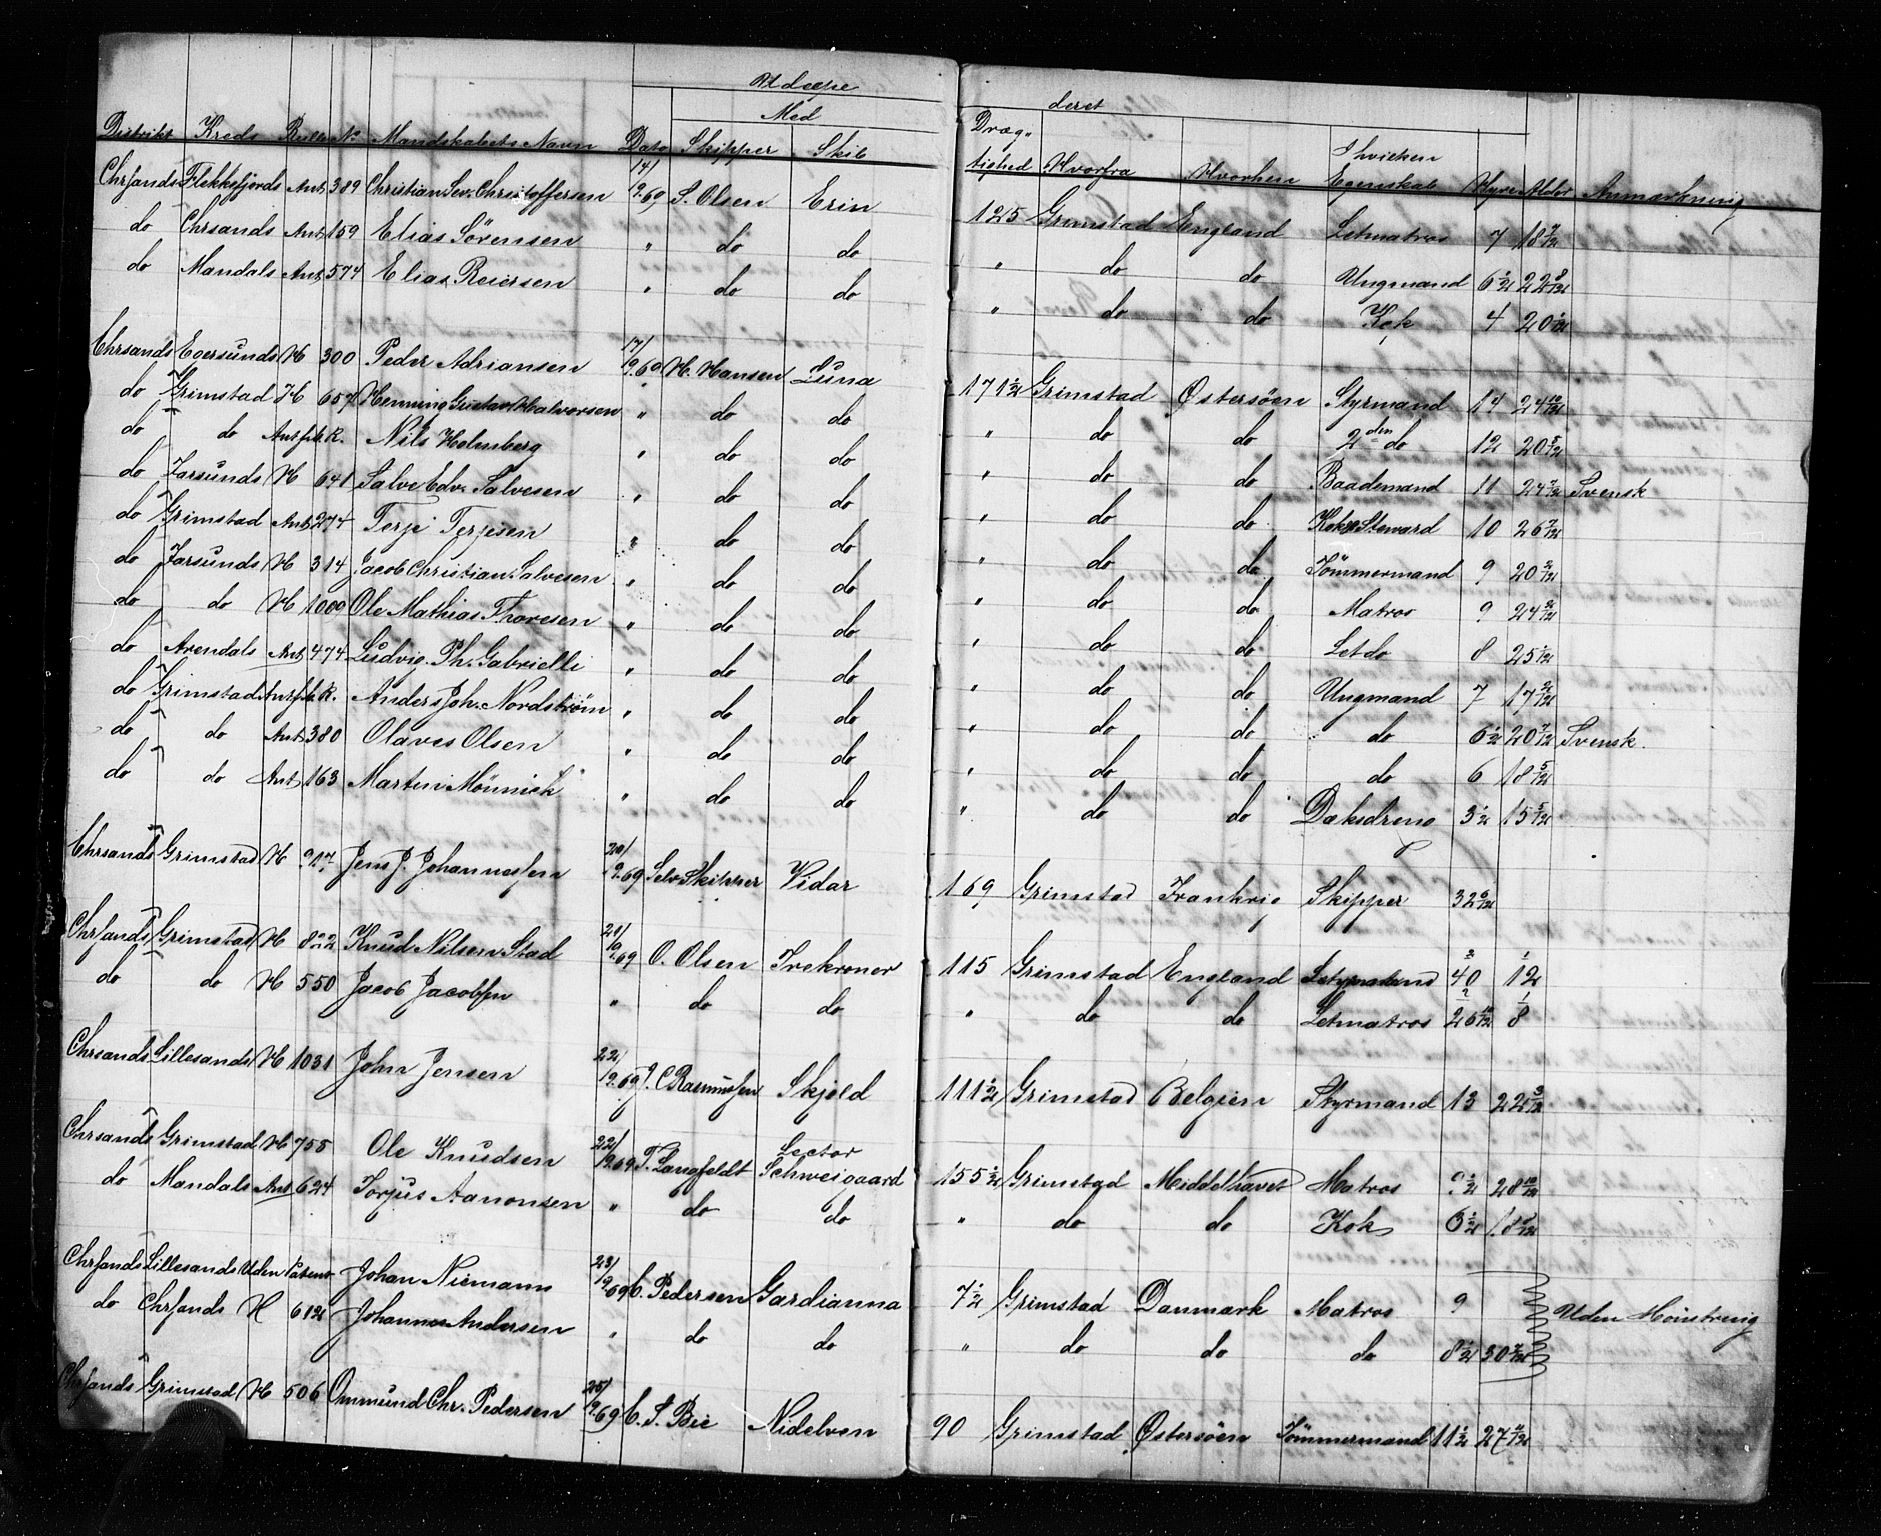 Udlæpe deret
Med
Distrikt Kreds Rulle No Mandskabets Navn Dato Skipper Skib Dræg- tighed Hvorfra Hvorhen I hvilken Egenskab Hyre Alder Anmærkning
Chrsands Flekkefjords Ant. 389 Christian Sev. Christoffersen 14/9.69 S. Olsen Erin 125 Grimstad England Letmatros 7 18 7/12
do Chrsands Ant. 159 Elias Sörensen " do do " do do Ungmand 6 1/2 22 8/12
do Mandals Ant. 574 Elias Reiersen " do do " do do Kok 4 20 1/12
Chrsands Egersunds H 300 Peder Adriansen 17/9.69 H. Hansen Luna 171 1/2 Grimstad Østersöen Styrmand 14 24 10/12
do Grimstad H 657 Henning Gustav Halvorsen " do do " do do 2den do 12 20 5/12
do do Nils Holmberg " do do " do do Baadsmand 11 24 7/12 Svensk
do Farsunds H 641 Salve Edv. Salvesen " do do " do do Kok & Steward 10 26 7/12
do Grimstad Ant. 274 Terje Terjesen " do do " do do Tömmermand 9 20 2/12
do Farsunds H 314 Jacob Christian Salvesen " do do " do do Matros 9 24 2/12
do do H 1009 Ole Mathias Thoresen " do do " do do Let do 8 25 1/12
do Arendals Ant. 474 Ludvig Ph. Gabrielli " do do " do do Ungmand 7 17 2/12
do Grimstad Anders Joh. Nordström " do do " do do do 6 1/2 20 7/12 Svensk.
do do Ant. 380 Olaves Olsen " do do " do do do 6 18 5/12
do do Ant. 163 Martin Mönnich " do do " do do Dæksdreng 3 1/2 15 5/12
Chrsands Grimstad H 917 Jens J. Johannessen 20/9.69 Selv Skipper Vidar 169 Grimstad Frankrig Skipper 32 6/12
Chrsands Grimstad H 822 Knud Nilsen Stad 21/9.69 O. Olsen Trekroner 115 Grimstad England 40 12
do do H 550 Jacob Jacobsen " do do " do do Letmatros 26 10/12 8
Chrsands Lillesands H 1031 John Jensen 22/9.69 J. C Rasmussen Skjold 111 1/2 Grimstad Belgien Styrmand 13 22 3/12
Chrsands Grimstad H 755 Ole Knudsen 22/9.69 T. Langfeldt Lector Schweigaard 155 1/2 Grimstad Middelhavet Matros 9 1/2 28 10/12
do Mandals Ant 624 Torjus Aanonsen " do do " do do Kok 6 1/2 18
Chrsands Lillesands Uden Patent Johan Niemann 23/9.69 C. Pedersen Gardianna 7 1/2 Grimstad Danmark Matros 9 Uden Mönstring
do Chrsands H 612 Johannes Andersen " do do " do do do 8 1/2 30 7/12
Chrsands Grimstad H 506 Ommund Chr. Pedersen 25/9.69 C. S. Bie Nidelven 90 Grimstad Østersöen Tömmermand 11 1/2 27